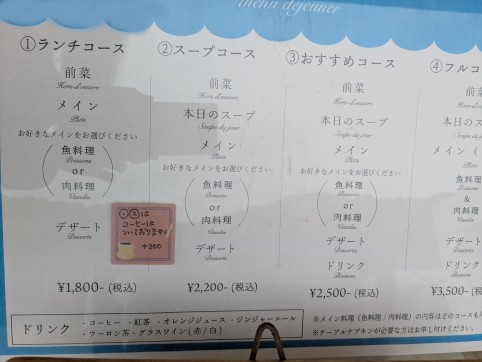 menu déjeuner
①ランチコース
前菜
Hors-d'oeuvre
メイン
Plats
お好きなメインをお選びください
魚料理
Poissons
or
肉料理
Viandes
デザート
Desserts
¥1,800-(税込)
②スープコース
前菜
Hors-d'oeuvre
本日のスープ
Soupe du jour
メイン
Plats
お好きなメインをお選びください
魚料理
Poissons
or
肉料理
Viandes
デザート
Desserts
¥2,200-(税込)
③おすすめコース
前菜
Hors-d'oeuvre
本日のスープ
Soupe du jour
メイン
Plats
お好きなメインをお選びください
魚料理
Poissons
or
肉料理
Viandes
デザート
Desserts
ドリンク
Boisson
¥2,500-(税込)
④フルコ
前菜
本日のス
メイン(
魚料
&
肉料
デザ
ドリン
¥3,500-(税
①②は
コーヒーは
ついておりません
+300
ドリンク
・コーヒー ・紅茶 ・オレンジジュース ・ジンジャーエール
・ウーロン茶 ・グラスワイン(赤/白)
※メイン料理(魚料理/肉料理)の内容はどのコースも
※テーブルナプキンが必要な方はお申し付けください。